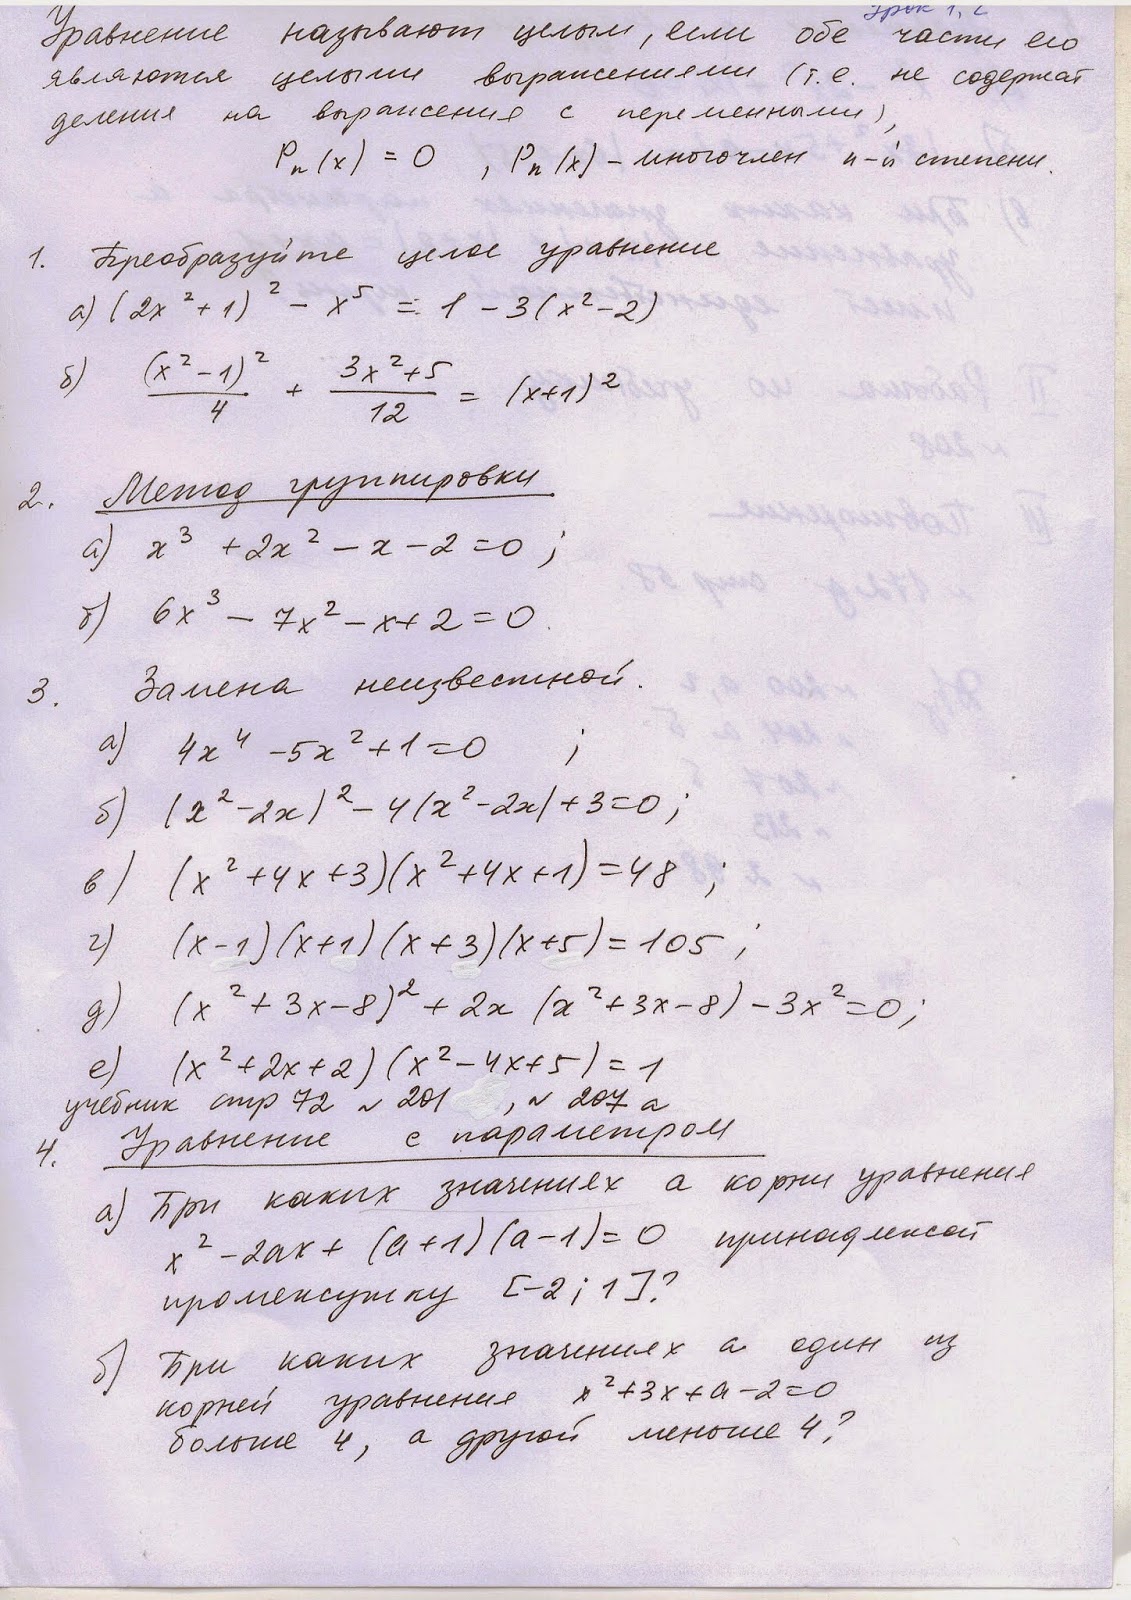 Урок 1, 2
Уравнение называют целым, если обе части его
являются целыми выражениями (т.е. не содержат
деления на выражения с переменными),
Pₙ(x) = 0 , Pₙ(x) - многочлен n-й степени.
1. Преобразуйте целое уравнение
а) (2x²+1)² - x⁵ = 1 - 3(x²-2)
б) (x²-1)²/4 + (3x²+5)/12 = (x+1)²
2. Метод группировки
а) x³ + 2x² - x - 2 = 0 ;
б) 6x³ - 7x² - x + 2 = 0.
3. Замена неизвестной.
а) 4x⁴ - 5x² + 1 = 0 ;
б) (x²-2x)² - 4(x²-2x) + 3 = 0 ;
в) (x²+4x+3)(x²+4x+1) = 48 ;
г) (x-1)(x+1)(x+3)(x+5) = 105 ;
д) (x²+3x-8)² + 2x (x²+3x-8) - 3x² = 0 ;
е) (x²+2x+2)(x²-4x+5) = 1
учебник стр 72 № 201 , № 207 а
4. Уравнение с параметром
а) При каких значениях а корни уравнения
x² - 2ax + (a+1)(a-1) = 0 принадлежат
промежутку [-2 ; 1]?
б) При каких значениях а один из
корней уравнения x²+3x+a-2=0
больше 4, а другой меньше 4?